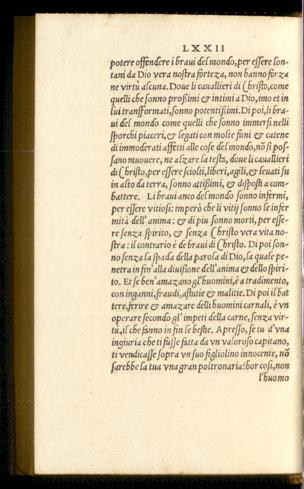 LXXII
potere offendere i braui del mondo, per essere lon-
tani da Dio vera nostra forteza, non hanno forza
ne virtù alcuna. Doue li cauallieri di Christo, come
quelli che sonno prossimi & intimi a Dio, imo et in
lui transformati, sonno potentissimi. Di poi, li bra-
ui del mondo come quelli che sonno immersi nelli
sporchi piaceri, & legati con molte funi & catene
di immoderati affetti alle cose del mondo, nō si pos-
sano muouere, ne alzare la testa, doue li cauallieri
di Christo, per essere sciolti, liberi, agili, & leuati su
in alto da terra, sonno altissimi, & disposti a com-
battere. Li braui anco del mondo sonno infermi,
per essere vitiosi: imperò che li vitij sonno le infer-
mità dell'anima: & di piu sonno morti, per esse-
re senza spirito, & senza Christo vera vita no-
stra: il contrario è de braui di Christo. Di poi son-
no senza la spada della parola di Dio, la quale pe-
netra in fin'alla diuisione dell'anima & dello spiri-
to. Et se ben'amazano gl'huomini, è a tradimento,
con inganni, fraudi, astutie & malitie. Di poi il bat-
tere, ferire & amazare delli huomini carnali, è vn
operare secondo gl'impeti della carne, senza vir-
tù, il che fanno in fin le bestie. Apresso, se tu d'vna
ingiuria che ti fusse fatta da vn valoroso capitano,
ti vendicasse sopra vn suo figliolino innocente, nō
sarebbe la tua vna gran poltronaria? hor cosi, non
l'huomo